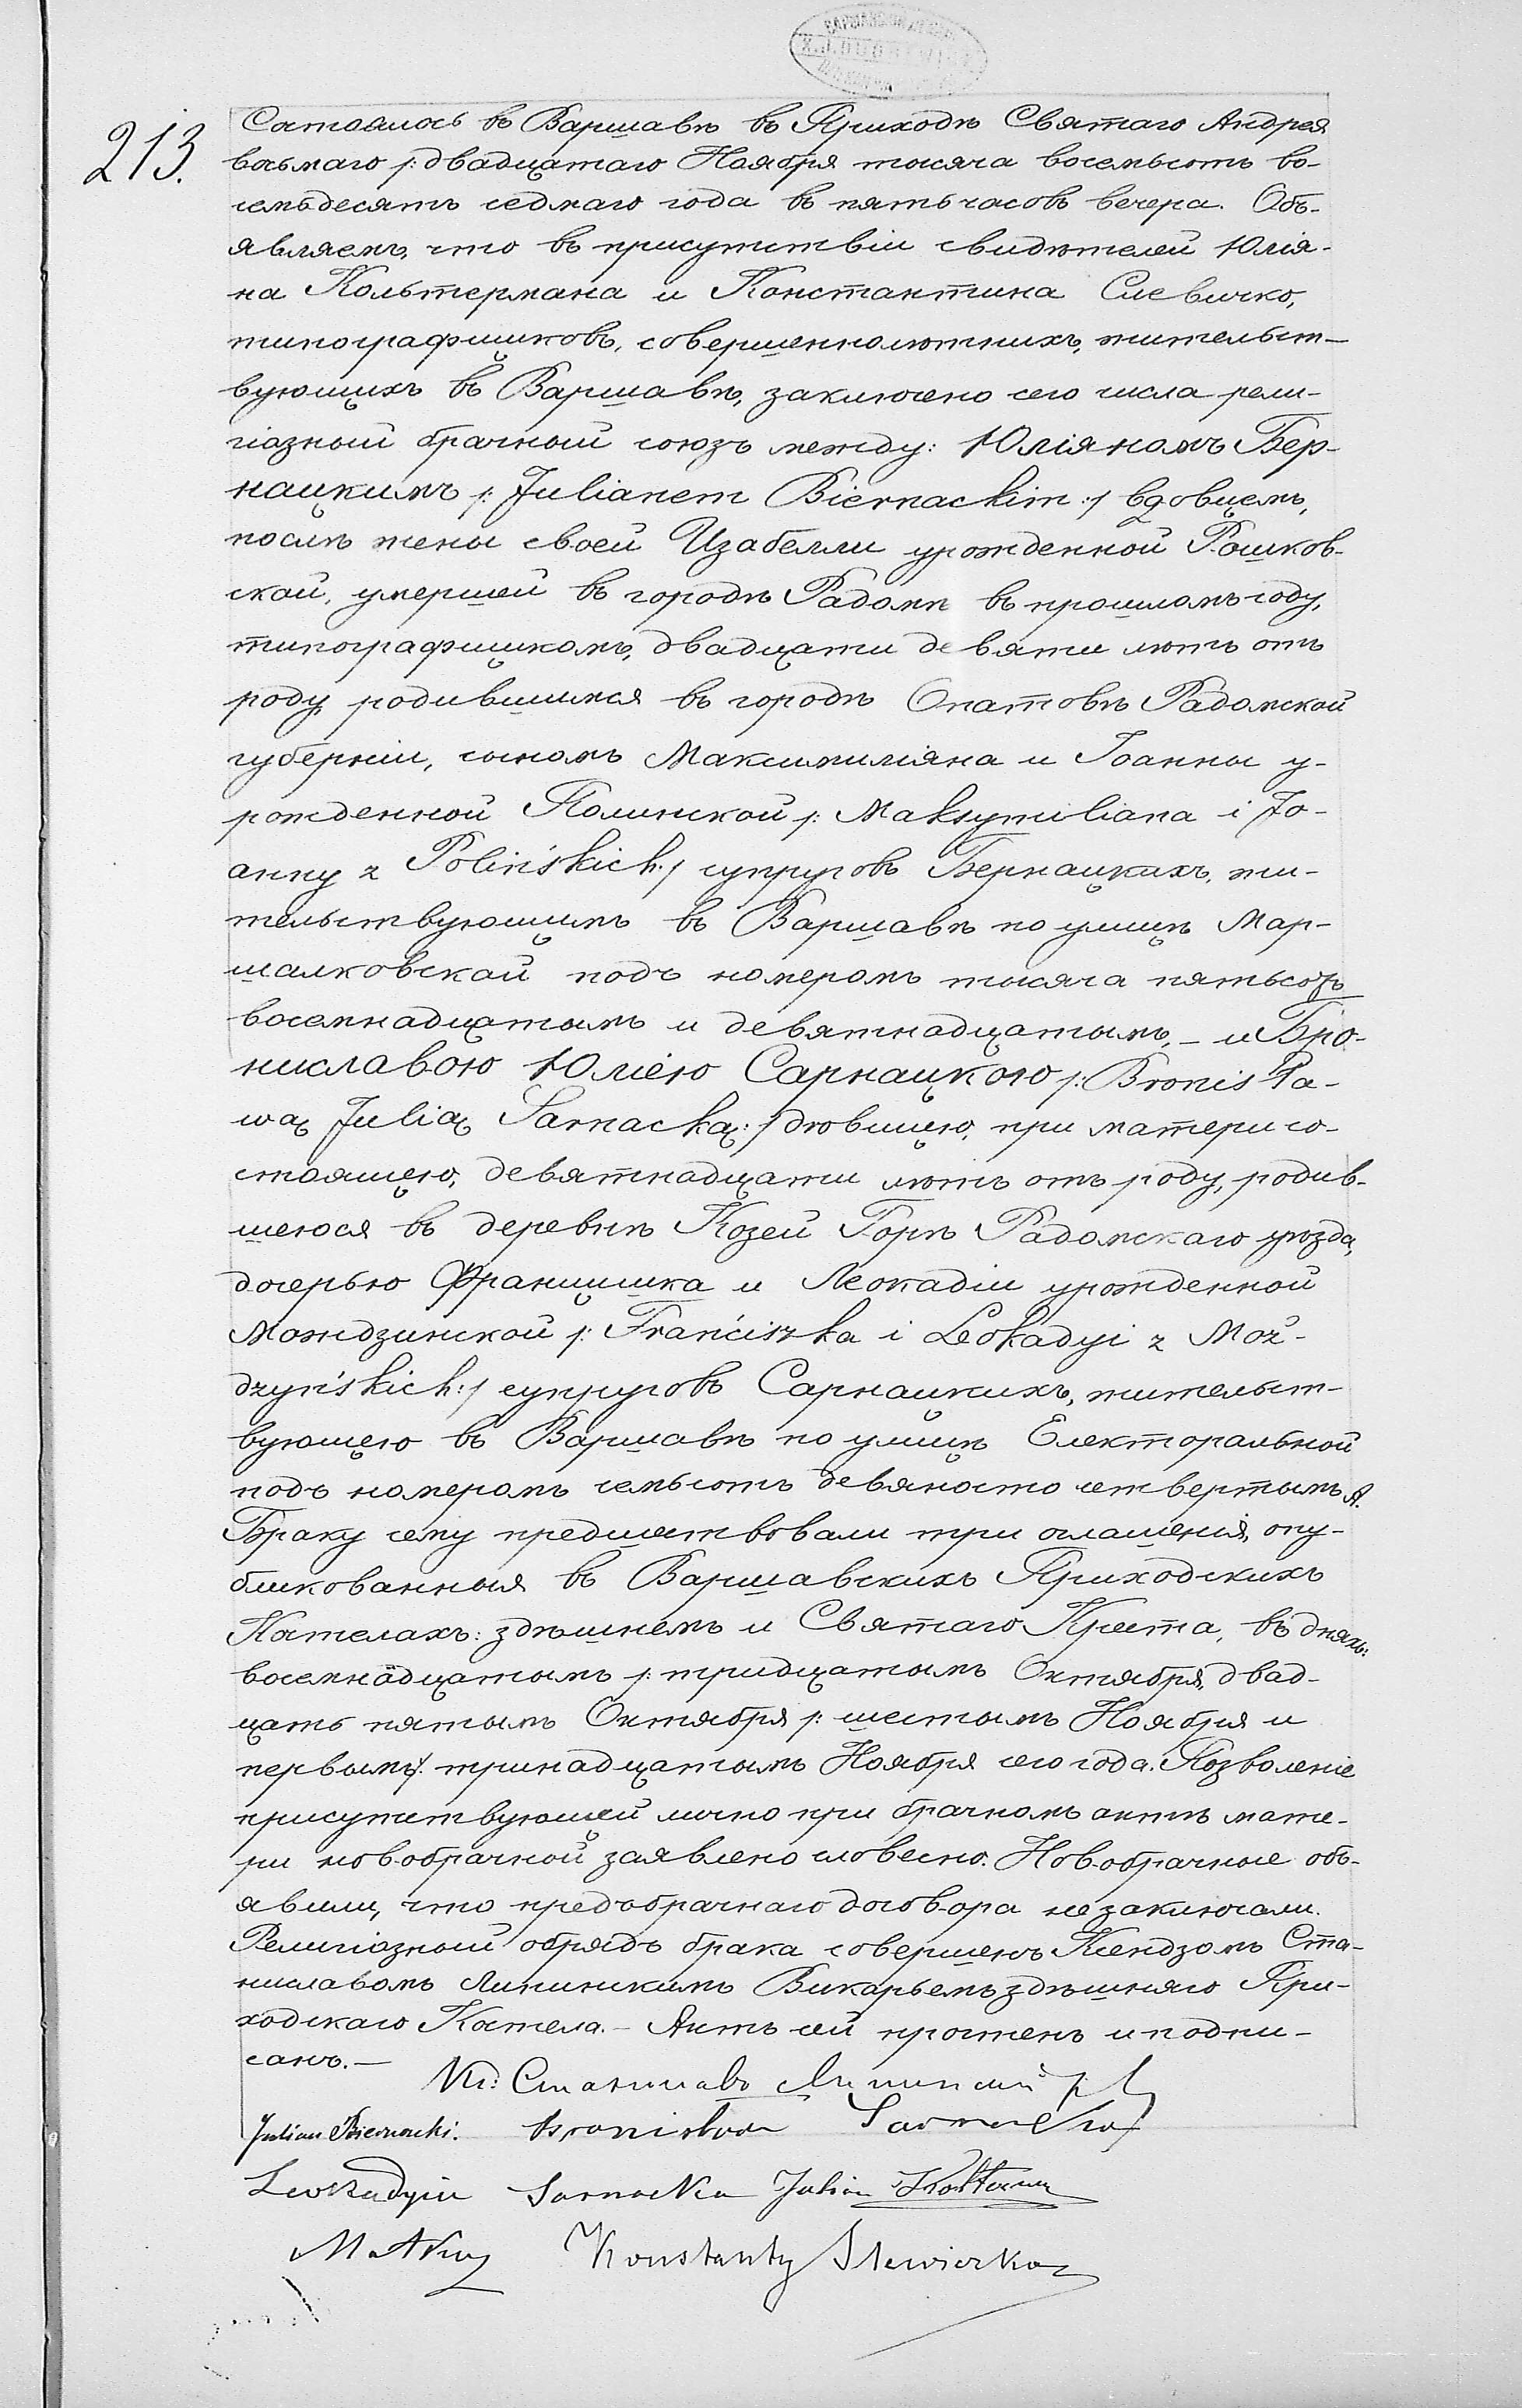 213.
Состоялось въ Варшавѣ въ Приходѣ Святаго Андрея
восьмаго /: двадцатаго Ноября тысяча восемьсотъ во-
семьдесятъ седмаго года въ пять часовъ вечера. Объ-
являемъ, что въ присутствіи свидѣтелей Юлія-
на Кольтермана и Константина Слевичко,
типографщиковъ, совершеннолѣтнихъ, жительст-
вующихъ въ Варшавѣ, заключено сего числа рели-
гіозный брачный союзъ между: Юліяномъ Бер-
нацкимъ /: Julianem Biernackim :/ вдовцемъ,
послѣ жены своей Изабелли урожденной Рошков-
ской, умершей въ городѣ Радомѣ въ прошломъ году,
типографщикомъ, двадцати девяти лѣтъ отъ
роду, родившимся въ городѣ Опатовѣ Радомской
губерніи, сыномъ Максимиліяна и Іоанны у-
рожденной Полинской /: Maksymiliana i Jo-
anny z Polińskich :/ супруговъ Бернацкихъ, жи-
тельствующимъ въ Варшавѣ по улицѣ Мар-
шалковской подъ номеромъ тысяча пятьсотъ
восемнадцатымъ и девятнадцатымъ, – и Бро-
ниславою Юліею Сарнацкою /: Bronisła-
wą Julią Sarnacką :/ дѣвицею, при матери со-
стоящею, девятнадцати лѣтъ отъ роду, родив-
шеюся въ деревнѣ Козей Горѣ Радомскаго уѣзда,
дочерью Францишка и Леокадіи урожденной
Мождзинской /: Franciszka i Leokadyi z Moż-
dzyńskich :/ супруговъ Сарнацкихъ, жительст-
вующею въ Варшавѣ по улицѣ Електоральной
подъ номеромъ семьсотъ девяносто четвертымъ А.
Браку сему предшествовали три оглашенія, опу-
бликованныя въ Варшавскихъ Приходскихъ
Костелахъ: здѣшнемъ и Святаго Креста, въ дняхъ:
восемнадцатымъ /: тридцатымъ Октября, двад-
цать пятымъ Октября /: шестымъ Ноября и
первымъ /: тринадцатымъ Ноября сего года. Позволеніе
присутствующей лично при брачномъ актѣ мате-
ри новобрачной заявлено словесно. Новобрачные объ-
явили, что предъбрачнаго договора не заключали.
Религіозный обрядъ брака совершенъ Ксендзомъ Ста-
ниславомъ Липинскимъ Викарьемъ здѣшняго При-
ходскаго Костела. – Актъ сей прочтенъ и подпи-
санъ. –
Кс: Станиславъ Липинскій
Julian Biernacki. Bronisława Sarnacka
Leokadyia Sarnacka Julian Kolterman
Matka Konstanty Slewiczko